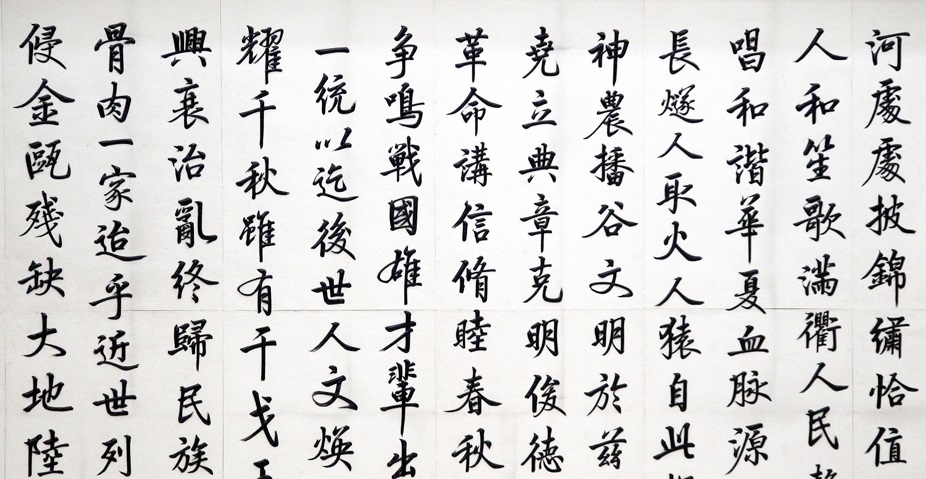 河處處披錦繡恰值
人和笙歌滿衢人民
唱和諧華夏血脉源
長燧人取火人猿自此
神農播谷文明於茲
堯立典章克明俊德
革命講信脩睦春秋
争鳴戰國雄才輩出
一統以迄後世人文煥
耀千秋雖有干戈
興衰治亂終歸民族
骨肉一家迨乎近世列
侵金甌殘缺大地陸